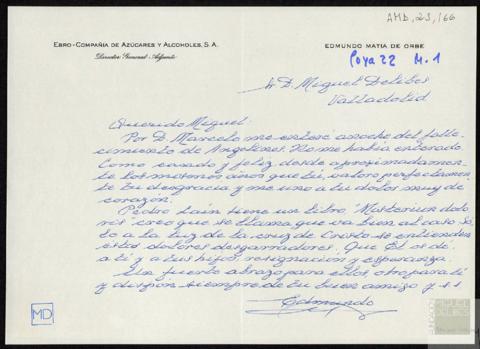 AMD, 23, 166
EBRO-COMPAÑÍA DE AZÚCARES Y ALCOHOLES, S. A.
Director General Adjunto
EDMUNDO MATIA DE ORBE
M. 1
Sr D. Miguel Delibes
Valladolid
Querido Miguel
Por D. Marcelo me enteré anoche del falle-
cimiento de Angelines. No me había enterado.
Como casado y feliz desde aproximadamen-
te los mismos años que tú, valoro perfectamen-
te tu desgracia y me uno a tu dolor muy de
corazón.
Pedro Laín tiene un libro "Mysterium dolo-
ris" creo que se llama que va bien al caso. So-
lo a la luz de la cruz de Cristo se entienden
estos dolores desgarradores. Que Él os dé
a ti y a tus hijos resignación y esperanza.
Un fuerte abrazo para ellos, otro para ti
y dispon siempre de tu buen amigo y ss
Edmundo
MD
FUNDACIÓN
MIGUEL
DELIBES